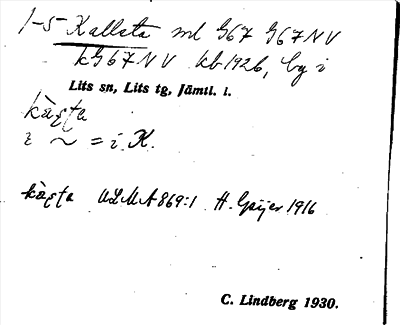 1-5 Kallsta ml G67 G67NV
kG67NV kb 1926, by i
Lits sn, Lits tg, Jämtl. l.
i ~ = i K.
ULMA 869:1 H. Geijer 1916
C. Lindberg 1930.